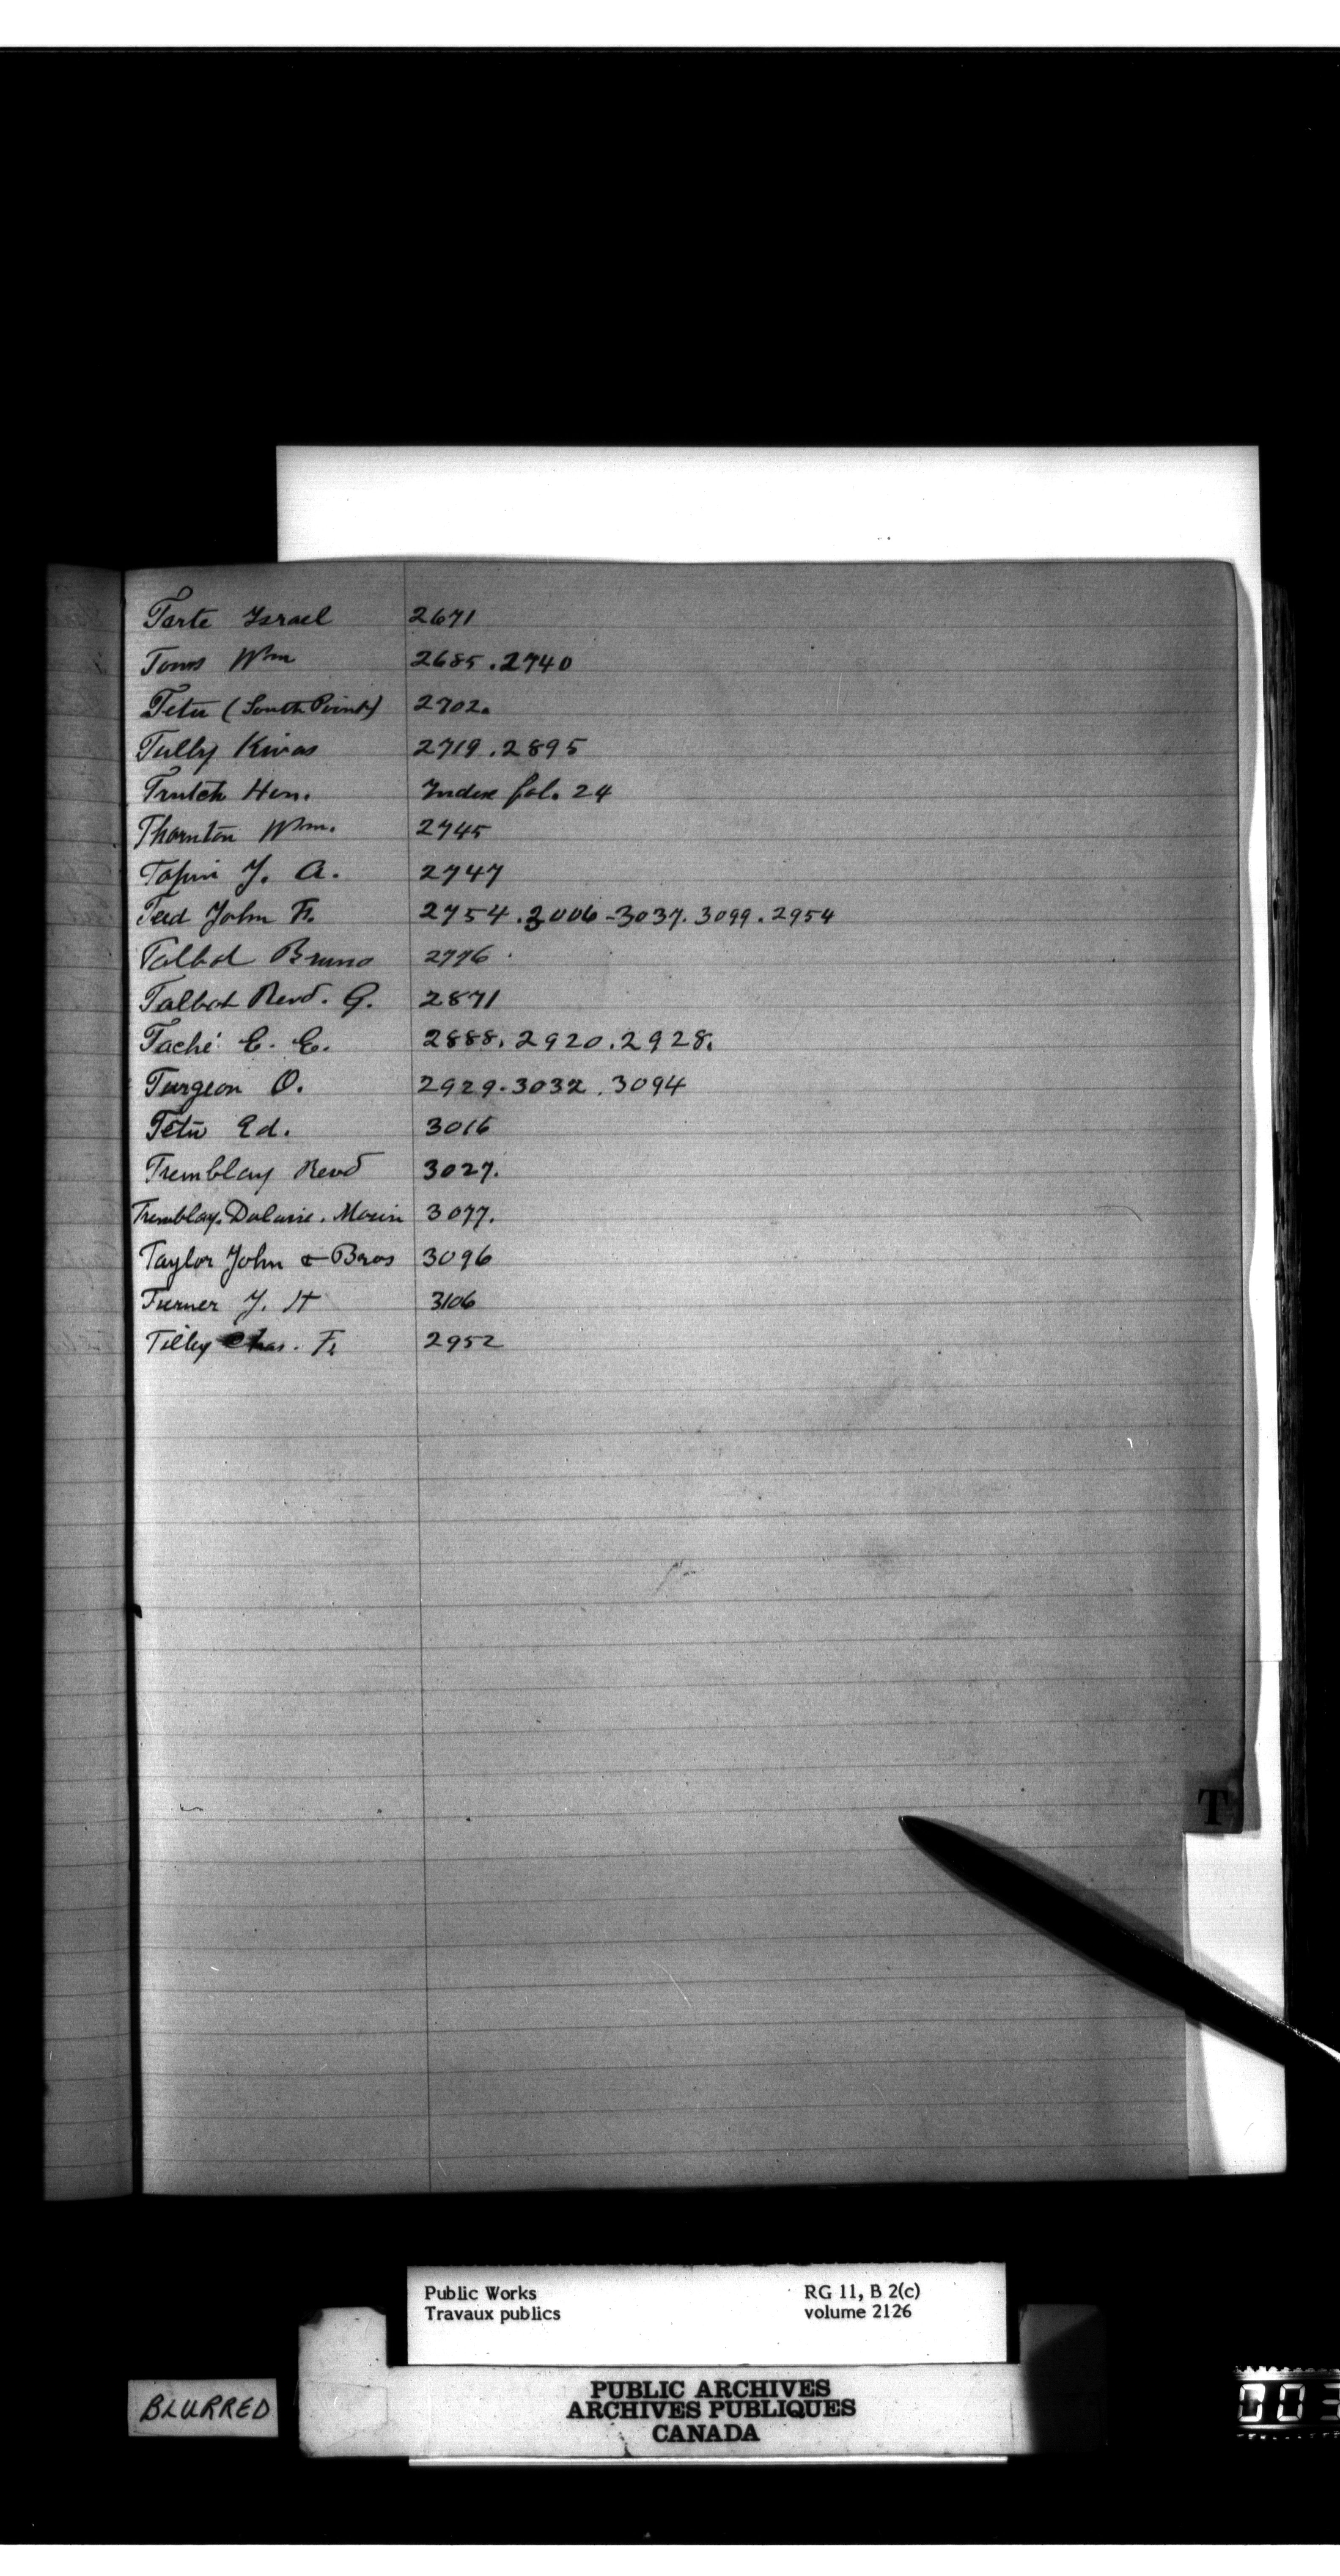 Tarte Israel 2671
Toms Wm 2685.2740
Tetu (South Point) 2702.
Tully Kivas 2719.2895
Trutch Hon. Index fol. 24
Thornton Wm. 2745
Tapin J. A. 2747
Teed John F. 2754.3006-3037.3099.2954
Talbot Bruno 2776
Talbot Revd. G. 2871
Taché E. E. 2888.2920.2928.
Turgeon O. 2929.3032.3094
Tetu Ed. 3016
Tremblay Revd 3027.
Tremblay. Morin 3077.
Taylor John & Bros 3096
Turner J. H 3106
Tilley Chas. F. 2952
T
Public Works RG 11, B 2(c)
Travaux publics volume 2126
BLURRED
PUBLIC ARCHIVES
ARCHIVES PUBLIQUES
CANADA
003